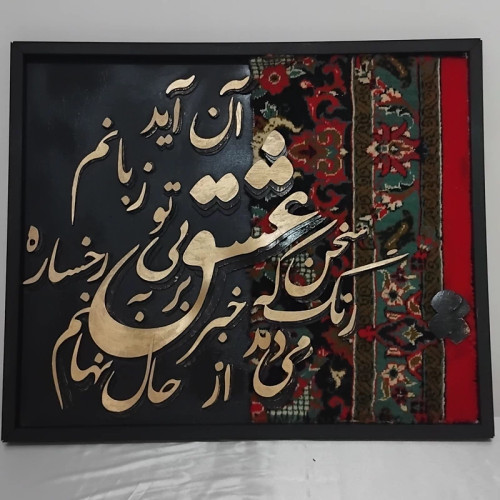 سخن عشق تو بی آن که بر آید به زبانم
رنگ رخساره خبر می‌دهد از حال نهانم